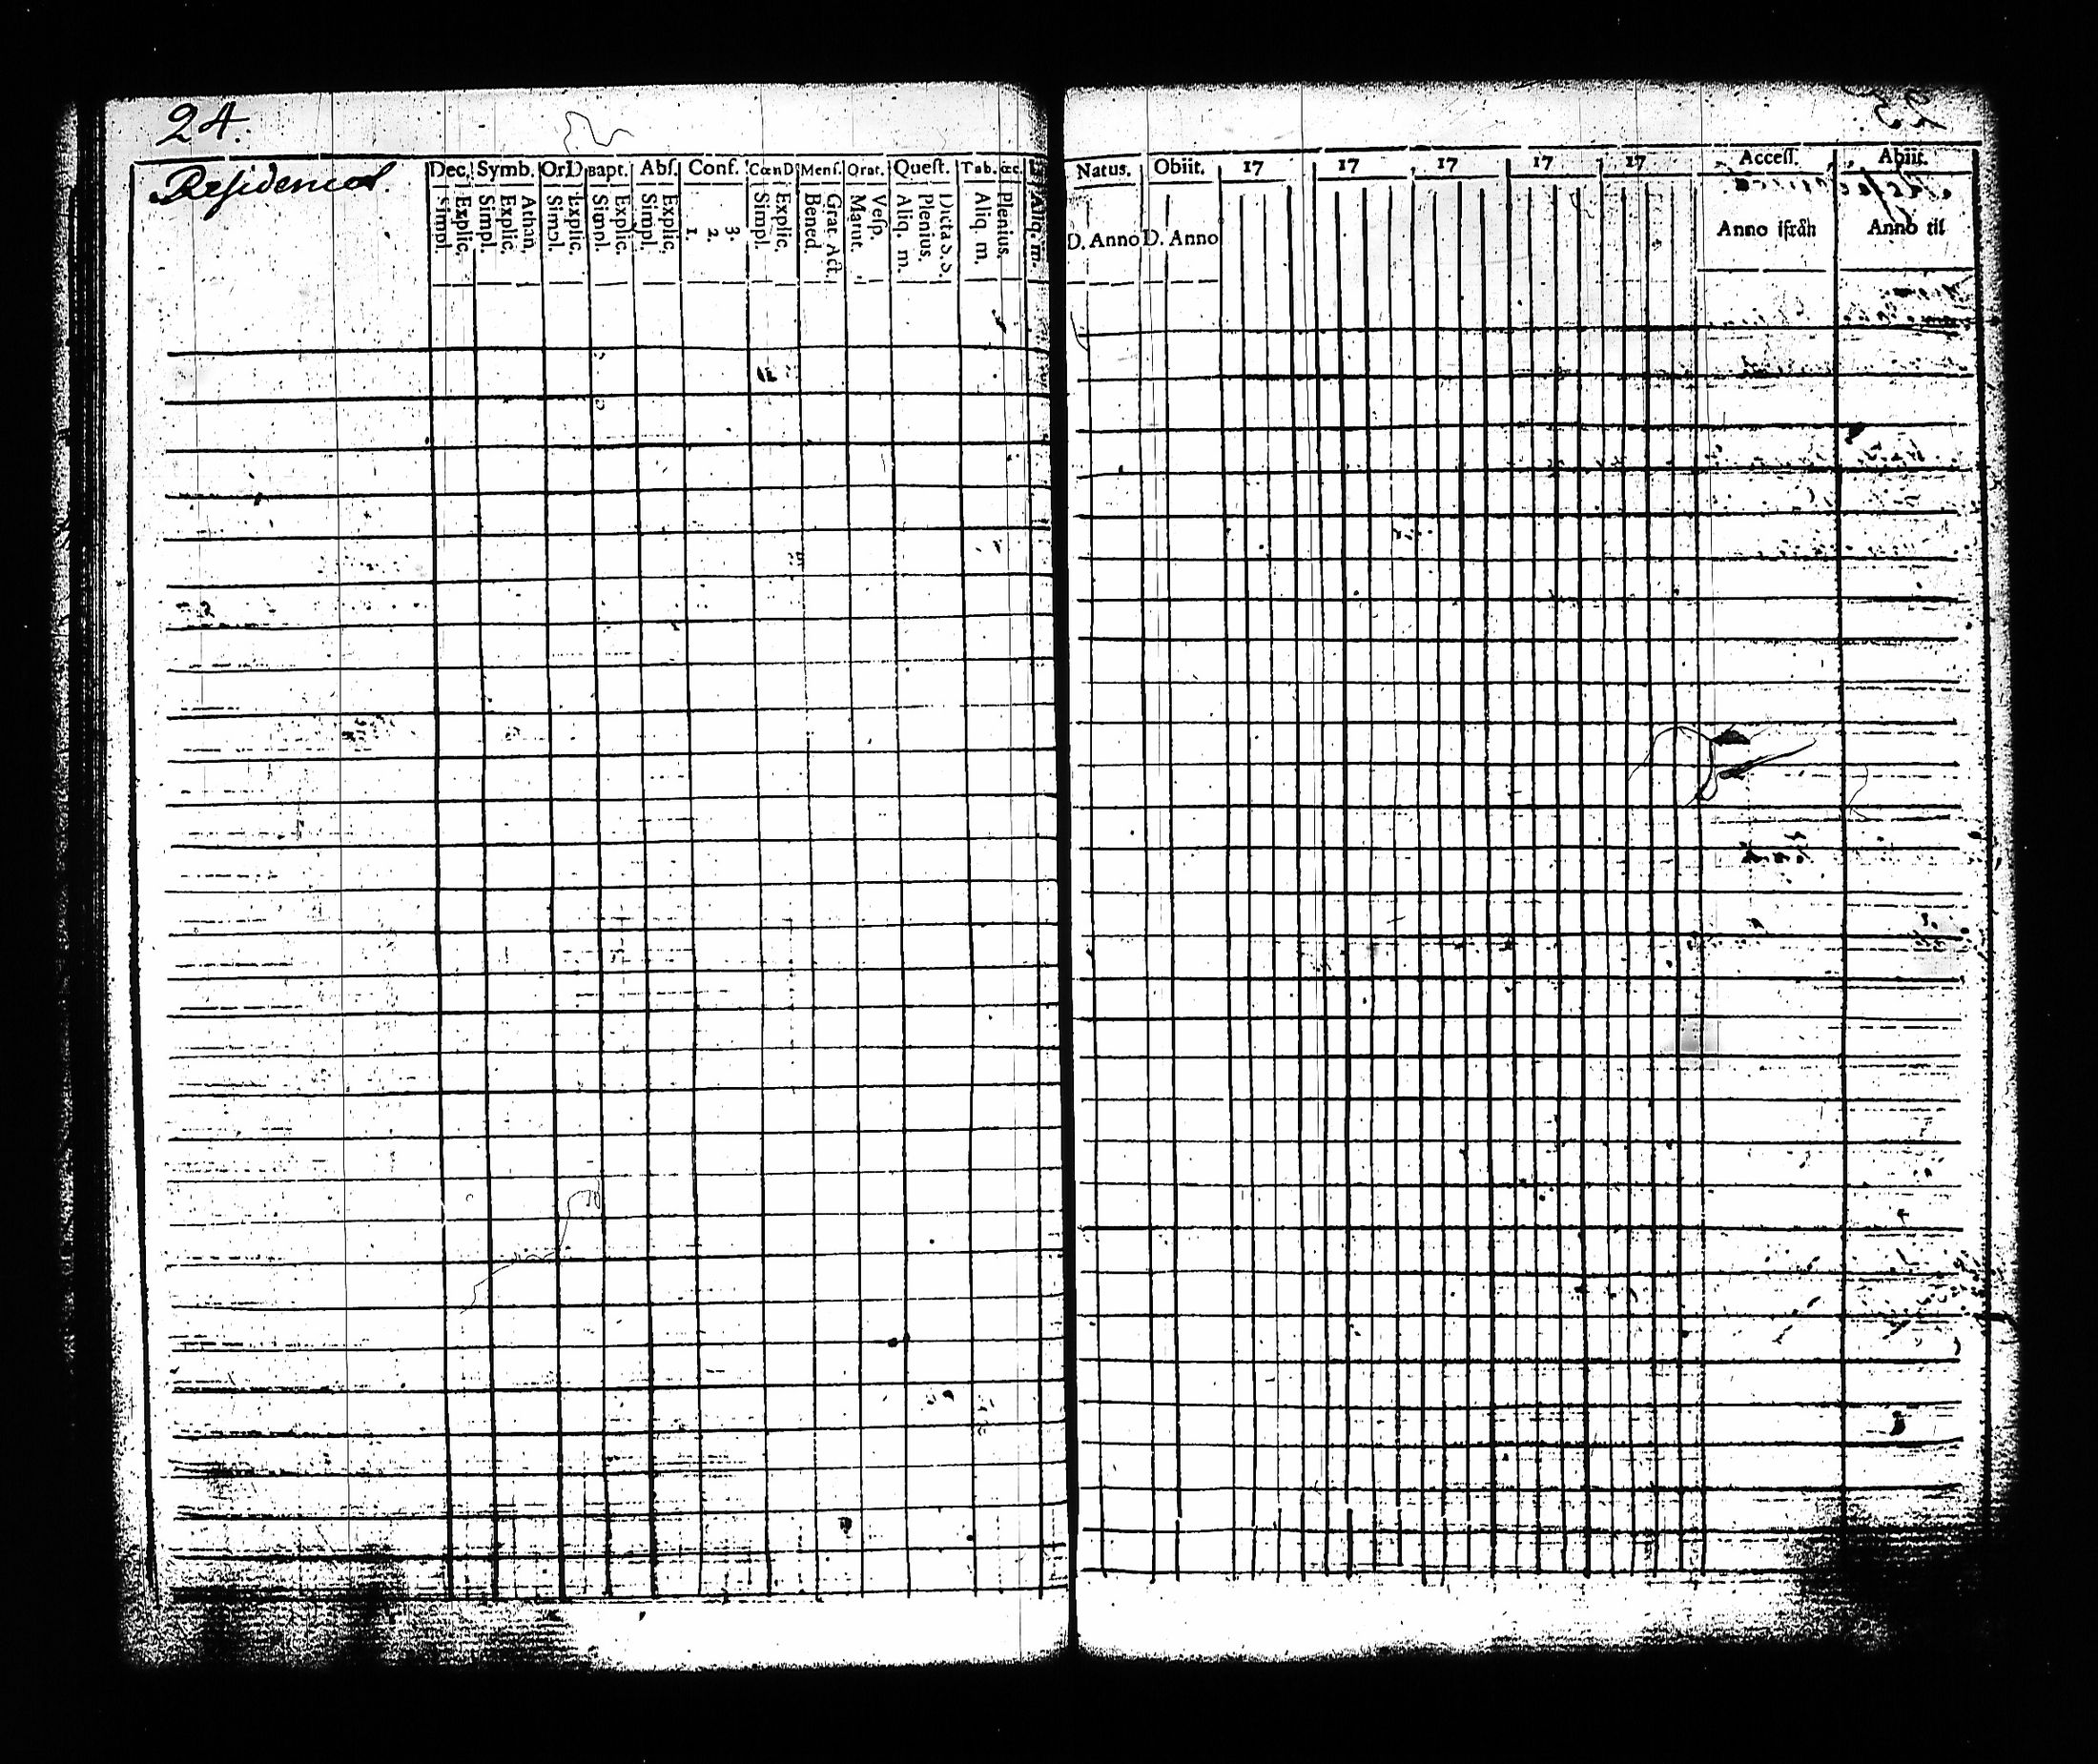 24.
Residencet.
Dec. Symb. Or.D Bapt. Abſ. Conf. CœnD Menſ. Orat. Queſt. Tab. œc.
Simpl. Explic. Simpl. Explic. Athan. Simpl. Explic. Simpl. Explic. Simpl. Explic. 1. 2. 3. Simpl. Explic. Bened. Grat. Act. Matut. Veſp. Aliq. m. Plenius. Dicta S. S. Aliq. m. Plenius. Aliq. m.
25.
Natus. Obiit. 17 17 17 17 17 Acceſſ. Abiit.
D. Anno D. Anno Anno ifrån Anno til